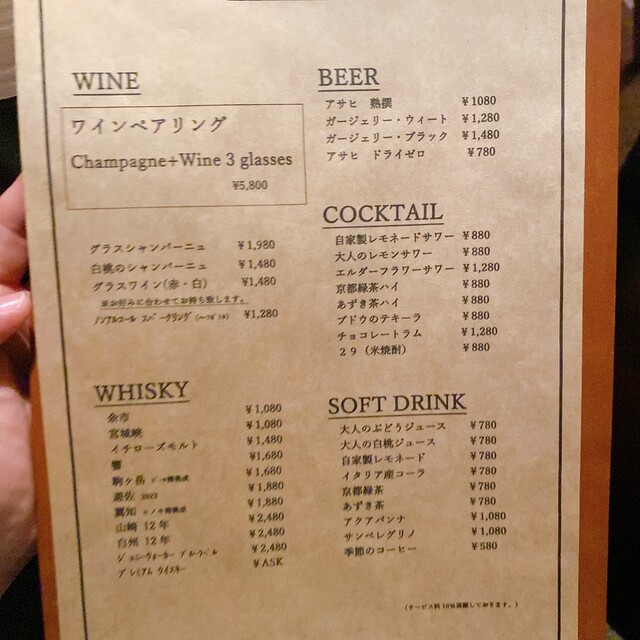 WINE
ワインペアリング
Champagne+Wine 3 glasses
¥5,800
グラスシャンパーニュ ¥1,980
白桃のシャンパーニュ ¥1,480
グラスワイン(赤・白) ¥1,480
※お好みに合わせてお持ち致します。
ノンアルコール スパークリング ¥1,280
WHISKY
余市 ¥1,080
宮城峡 ¥1,080
イチローズモルト ¥1,480
響 ¥1,680
駒ヶ岳 ¥1,680
遊佐 2023 ¥1,880
¥1,880
山崎 12年 ¥2,480
白州 12年 ¥2,480
ジョニーウォーカー ブルーラベル ¥2,480
プレミアム ウイスキー ¥ASK
BEER
アサヒ 熟撰 ¥1080
ガージェリー・ウィート ¥1,280
ガージェリー・ブラック ¥1,480
アサヒ ドライゼロ ¥780
COCKTAIL
自家製レモネードサワー ¥880
大人のレモンサワー ¥880
エルダーフラワーサワー ¥1,280
京都緑茶ハイ ¥880
あずき茶ハイ ¥880
ブドウのテキーラ ¥880
チョコレートラム ¥1,280
29(米焼酎) ¥880
SOFT DRINK
大人のぶどうジュース ¥780
大人の白桃ジュース ¥780
自家製レモネード ¥780
イタリア産コーラ ¥780
京都緑茶 ¥780
あずき茶 ¥780
アクアパンナ ¥1,080
サンペレグリノ ¥1,080
季節のコーヒー ¥580
(サービス料10%頂戴しております。)